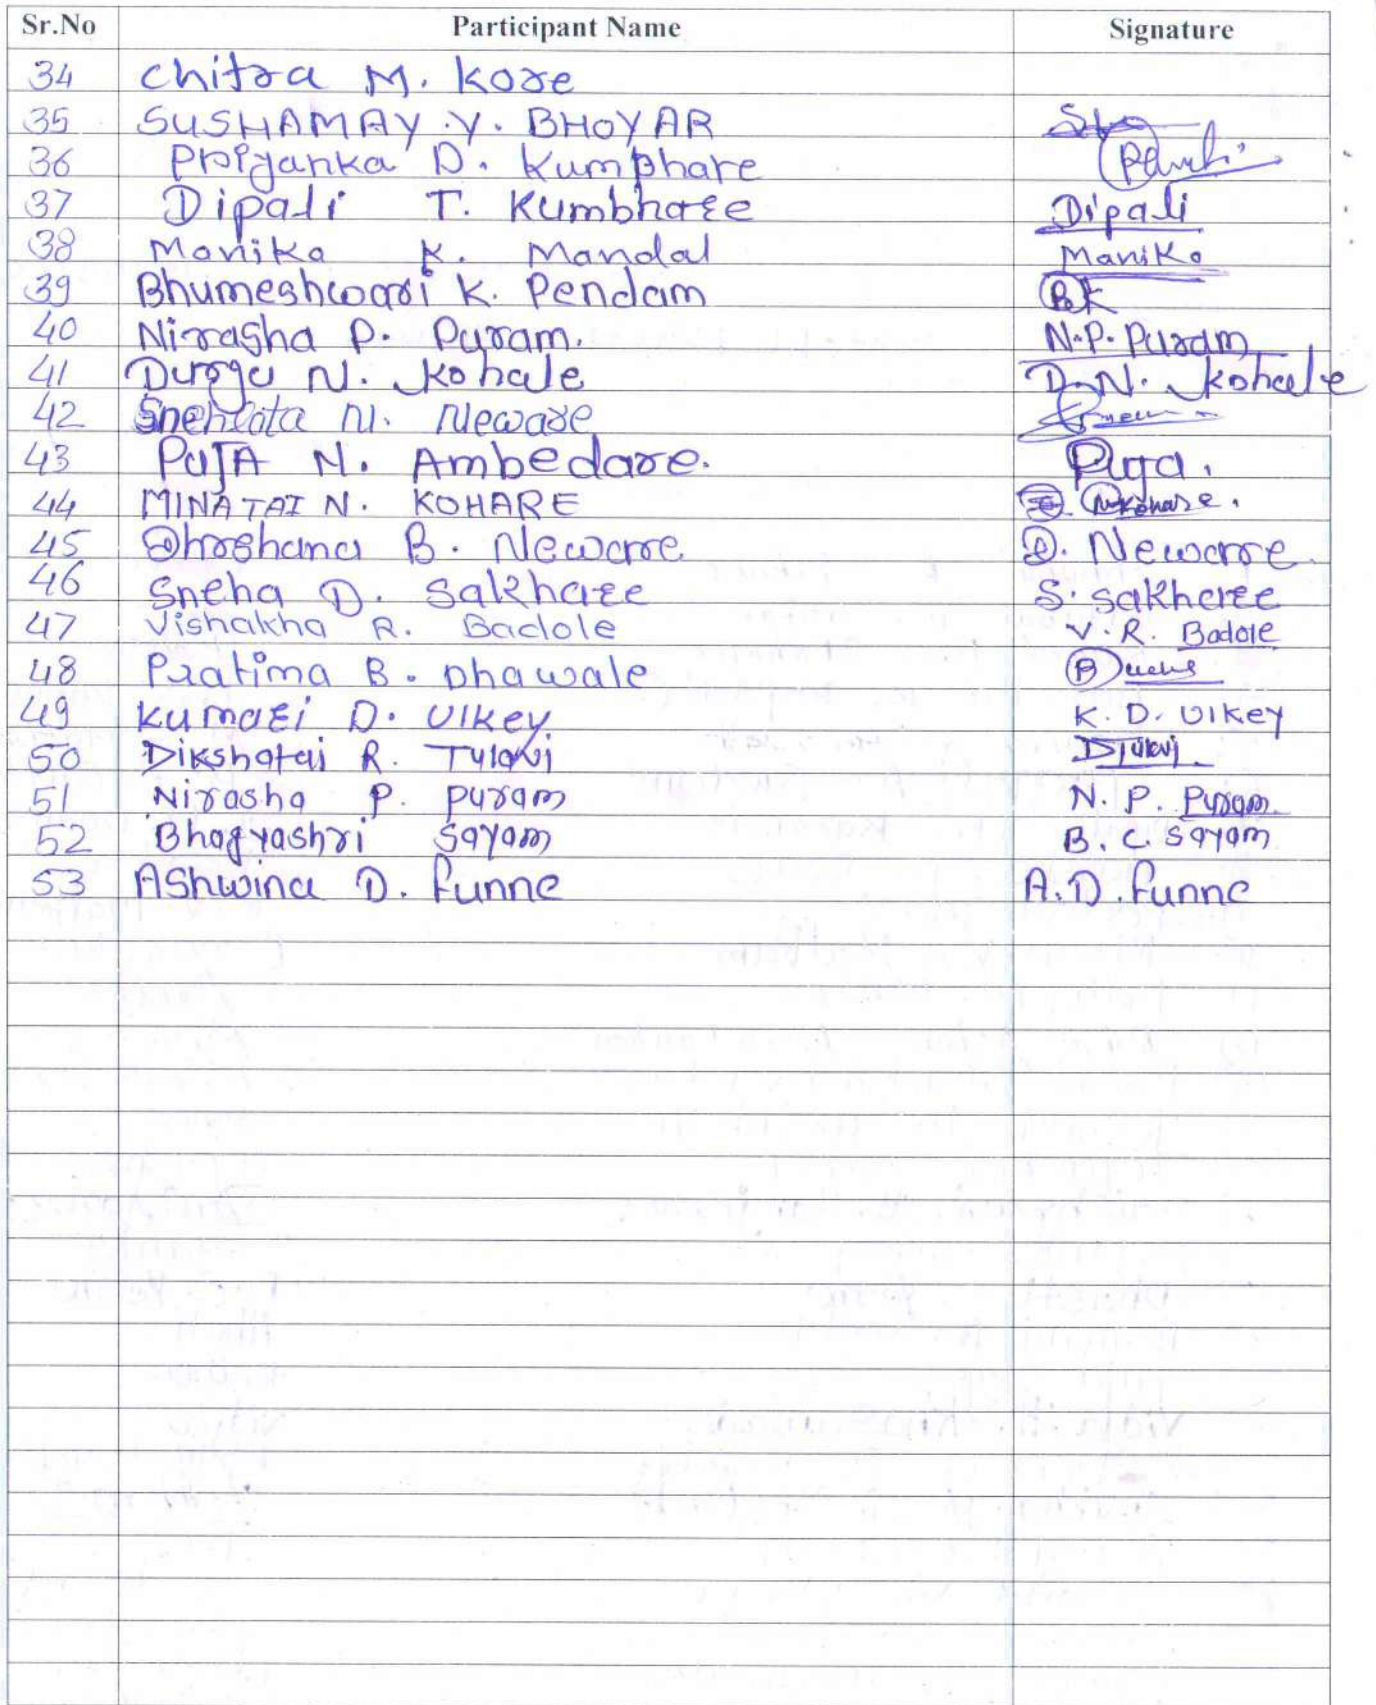 Sr.No Participant Name Signature
34 Chitra M. Kore
35 SUSHAMAY .Y. BHOYAR
36 Priyanka D. Kumbhare
37 Dipali T. Kumbhare Dipali
38 Monika K. Mandal Monika
39 Bhumeshwari K. Pendam BK
40 Nirasha P. Puram. N.P. Puram
41 Durga N. Kohale D.N. Kohale
42 Snehlata N. Neware
43 PUJA N. Ambedare. Puja.
44 MINATAI N. KOHARE N.Kohare.
45 Dhrshana B. Neware D. Neware
46 Sneha D. Sakhare S. Sakhare
47 Vishakha R. Badole V. R. Badole
48 Pratima B. Dhawale
49 Kumari D. Uikey K. D. Uikey
50 Dikshatai R. Tulavi DTulavi.
51 Nirasha P. Puram N. P. Puram
52 Bhagyashri Sayam B. C. Sayam
53 AShwina D. funne A.D. funne